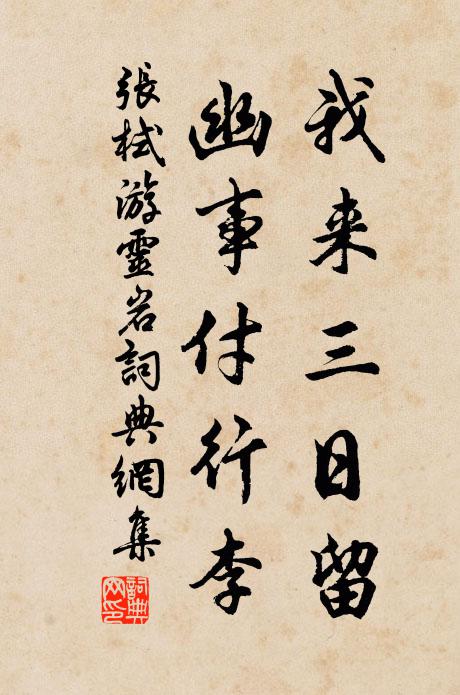 我来三日留
幽事付行李
張栻游靈岩詞典網集
詞典網印